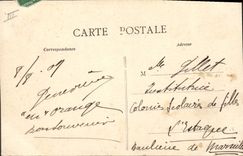 CARTE POSTALE
Correspondance
Adresse
Mlle Gillet
Institutrice
Colonie scolaire de filles
l'Estaque
banlieue de Marseille
8/8 09
Geneviève
Orange
bon souvenir